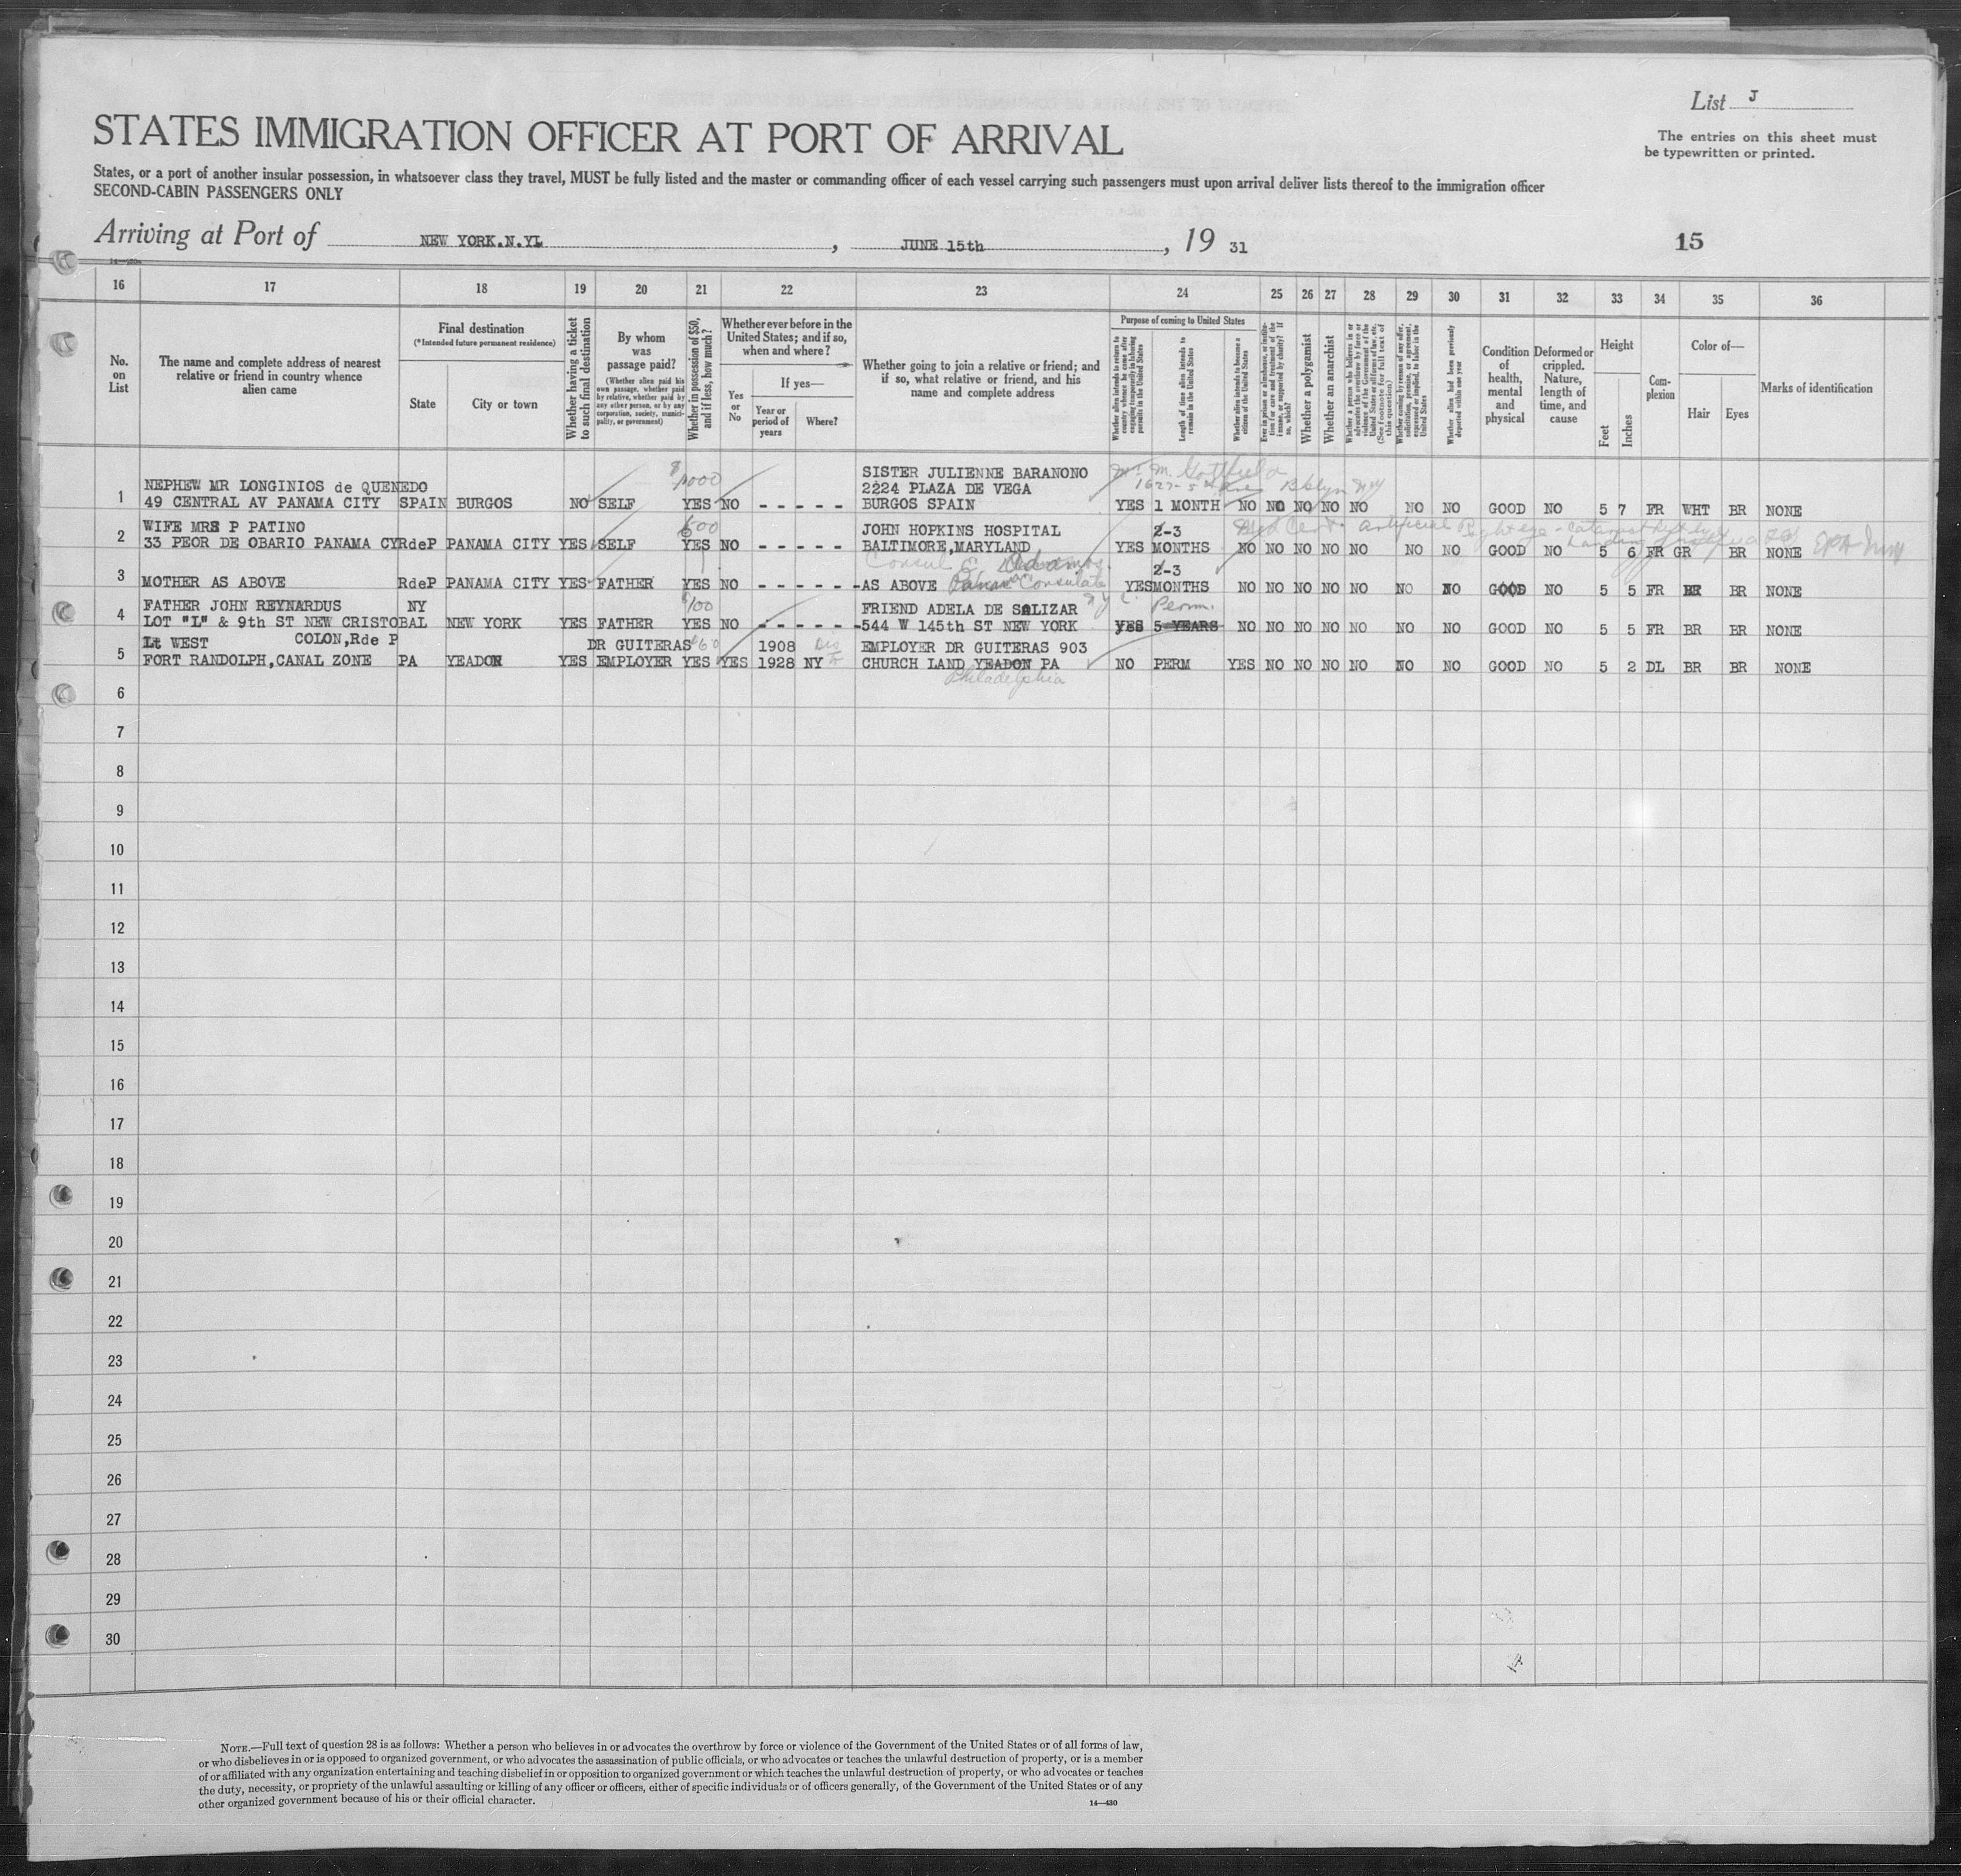 List J
STATES IMMIGRATION OFFICER AT PORT OF ARRIVAL
The entries on this sheet must
be typewritten or printed.
States, or a port of another insular possession, in whatsoever class they travel, MUST be fully listed and the master or commanding officer of each vessel carrying such passengers must upon arrival deliver lists thereof to the immigration officer
SECOND-CABIN PASSENGERS ONLY
Arriving at Port of NEW YORK.N.YL, JUNE 15th, 19 31
15
16 17 18 19 20 21 22 23 24 25 26 27 28 29 30 31 32 33 34 35 36
No. on List
The name and complete address of nearest relative or friend in country whence alien came
Final destination
(*Intended future permanent residence)
State
City or town
Whether having a ticket to such final destination
By whom was passage paid?
(Whether alien paid his own passage, whether paid by relative, whether paid by any other person, or by any corporation, society, municipality, or government)
Whether in possession of $50, and if less, how much?
Whether ever before in the United States; and if so, when and where?
Yes or No
If yes—
Year or period of years
Where?
Whether going to join a relative or friend; and if so, what relative or friend, and his name and complete address
Purpose of coming to United States
Whether alien intends to return to country whence he came after engaging temporarily in laboring pursuits in the United States
Length of time alien intends to remain in the United States
Whether alien intends to become a citizen of the United States
Whether a polygamist
Whether an anarchist
Whether alien had been previously deported within one year
Condition of health, mental and physical
Deformed or crippled. Nature, length of time, and cause
Height
Feet
Inches
Complexion
Color of—
Hair
Eyes
Marks of identification
1
NEPHEW MR LONGINIOS de QUENEDO
49 CENTRAL AV PANAMA CITY SPAIN BURGOS NO SELF $1000 YES NO - - - - -
SISTER JULIENNE BARANONO
2224 PLAZA DE VEGA
BURGOS SPAIN
Bklyn NY
YES 1 MONTH NO NO NO NO NO NO NO GOOD NO 5 7 FR WHT BR NONE
2
WIFE MRS P PATINO
33 PEOR DE OBARIO PANAMA CY RdeP PANAMA CITY YES SELF YES NO - - - - -
JOHN HOPKINS HOSPITAL
BALTIMORE,MARYLAND
2-3
YES MONTHS NO NO NO NO NO NO NO GOOD NO 5 6 FR GR BR NONE
3
MOTHER AS ABOVE RdeP PANAMA CITY YES FATHER YES NO - - - - - -
Consul
AS ABOVE Consulate
2-3
YES MONTHS NO NO NO NO NO NO NO GOOD NO 5 5 FR BR BR NONE
4
FATHER JOHN REYNARDUS NY
LOT "L" & 9th ST NEW CRISTOBAL NEW YORK YES FATHER $100 YES NO - - - - - -
COLON,Rde P
FRIEND ADELA DE SALIZAR
544 W 145th ST NEW YORK
Perm.
YES 5 YEARS NO NO NO NO NO NO NO GOOD NO 5 5 FR BR BR NONE
5
Lt WEST
FORT RANDOLPH,CANAL ZONE PA YEADON YES DR GUITERAS EMPLOYER $60 YES YES 1908 1928 NY
EMPLOYER DR GUITERAS 903
CHURCH LAND YEADON PA
Philadelphia
NO PERM YES NO NO NO NO NO NO GOOD NO 5 2 DL BR BR NONE
6
7
8
9
10
11
12
13
14
15
16
17
18
19
20
21
22
23
24
25
26
27
28
29
30
NOTE.—Full text of question 28 is as follows: Whether a person who believes in or advocates the overthrow by force or violence of the Government of the United States or of all forms of law,
or who disbelieves in or is opposed to organized government, or who advocates the assassination of public officials, or who advocates or teaches the unlawful destruction of property, or is a member
of or affiliated with any organization entertaining and teaching disbelief in or opposition to organized government or which teaches the unlawful destruction of property, or who advocates or teaches
the duty, necessity, or propriety of the unlawful assaulting or killing of any officer or officers, either of specific individuals or of officers generally, of the Government of the United States or of any
other organized government because of his or their official character.
14—430